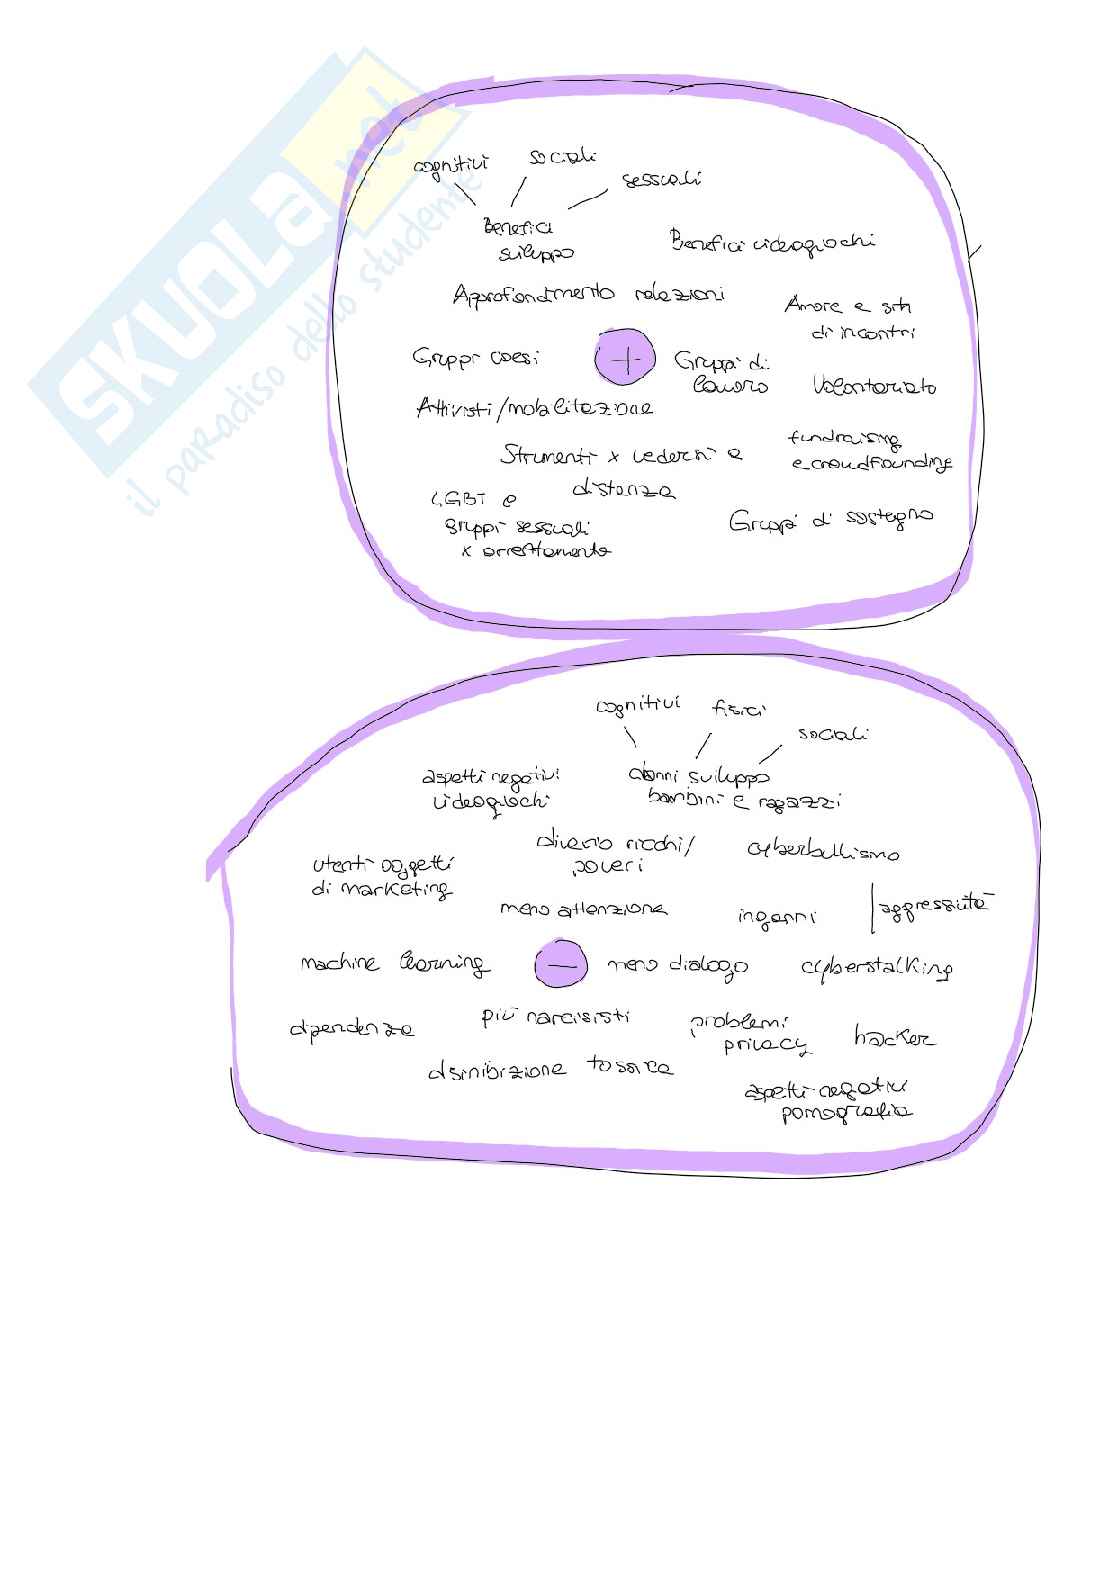 SKUOLA.net
il paradiso dello studente
cognitivi
sociali
sessuali
Benefici
sviluppo
Benefici videogiochi
Approfondimento relazioni
Amore e siti
di incontri
Gruppi coesi
+
Gruppi di
lavoro
Volontariato
Attivisti/mobilitazione
fundraising
e crowdfounding
Strumenti x vederci e
distanza
LGBT e
gruppi sessuali
x orientamento
Gruppi di sostegno
cognitivi
fisici
sociali
aspetti negativi
videogiochi
danni sviluppo
bambini e ragazzi
divario ricchi/
poveri
cyberbullismo
utenti oggetti
di marketing
meno attenzione
inganni
aggressività
machine learning
-
meno dialogo
cyberstalking
dipendenze
più narcisisti
problemi
privacy
hacker
disinibizione tossica
aspetti negativi
pornografia